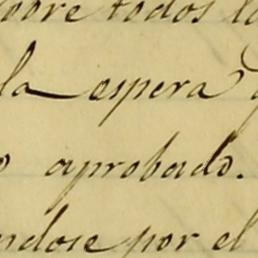 sobre todos lo
la espera q
o aprobado.
ndose por el